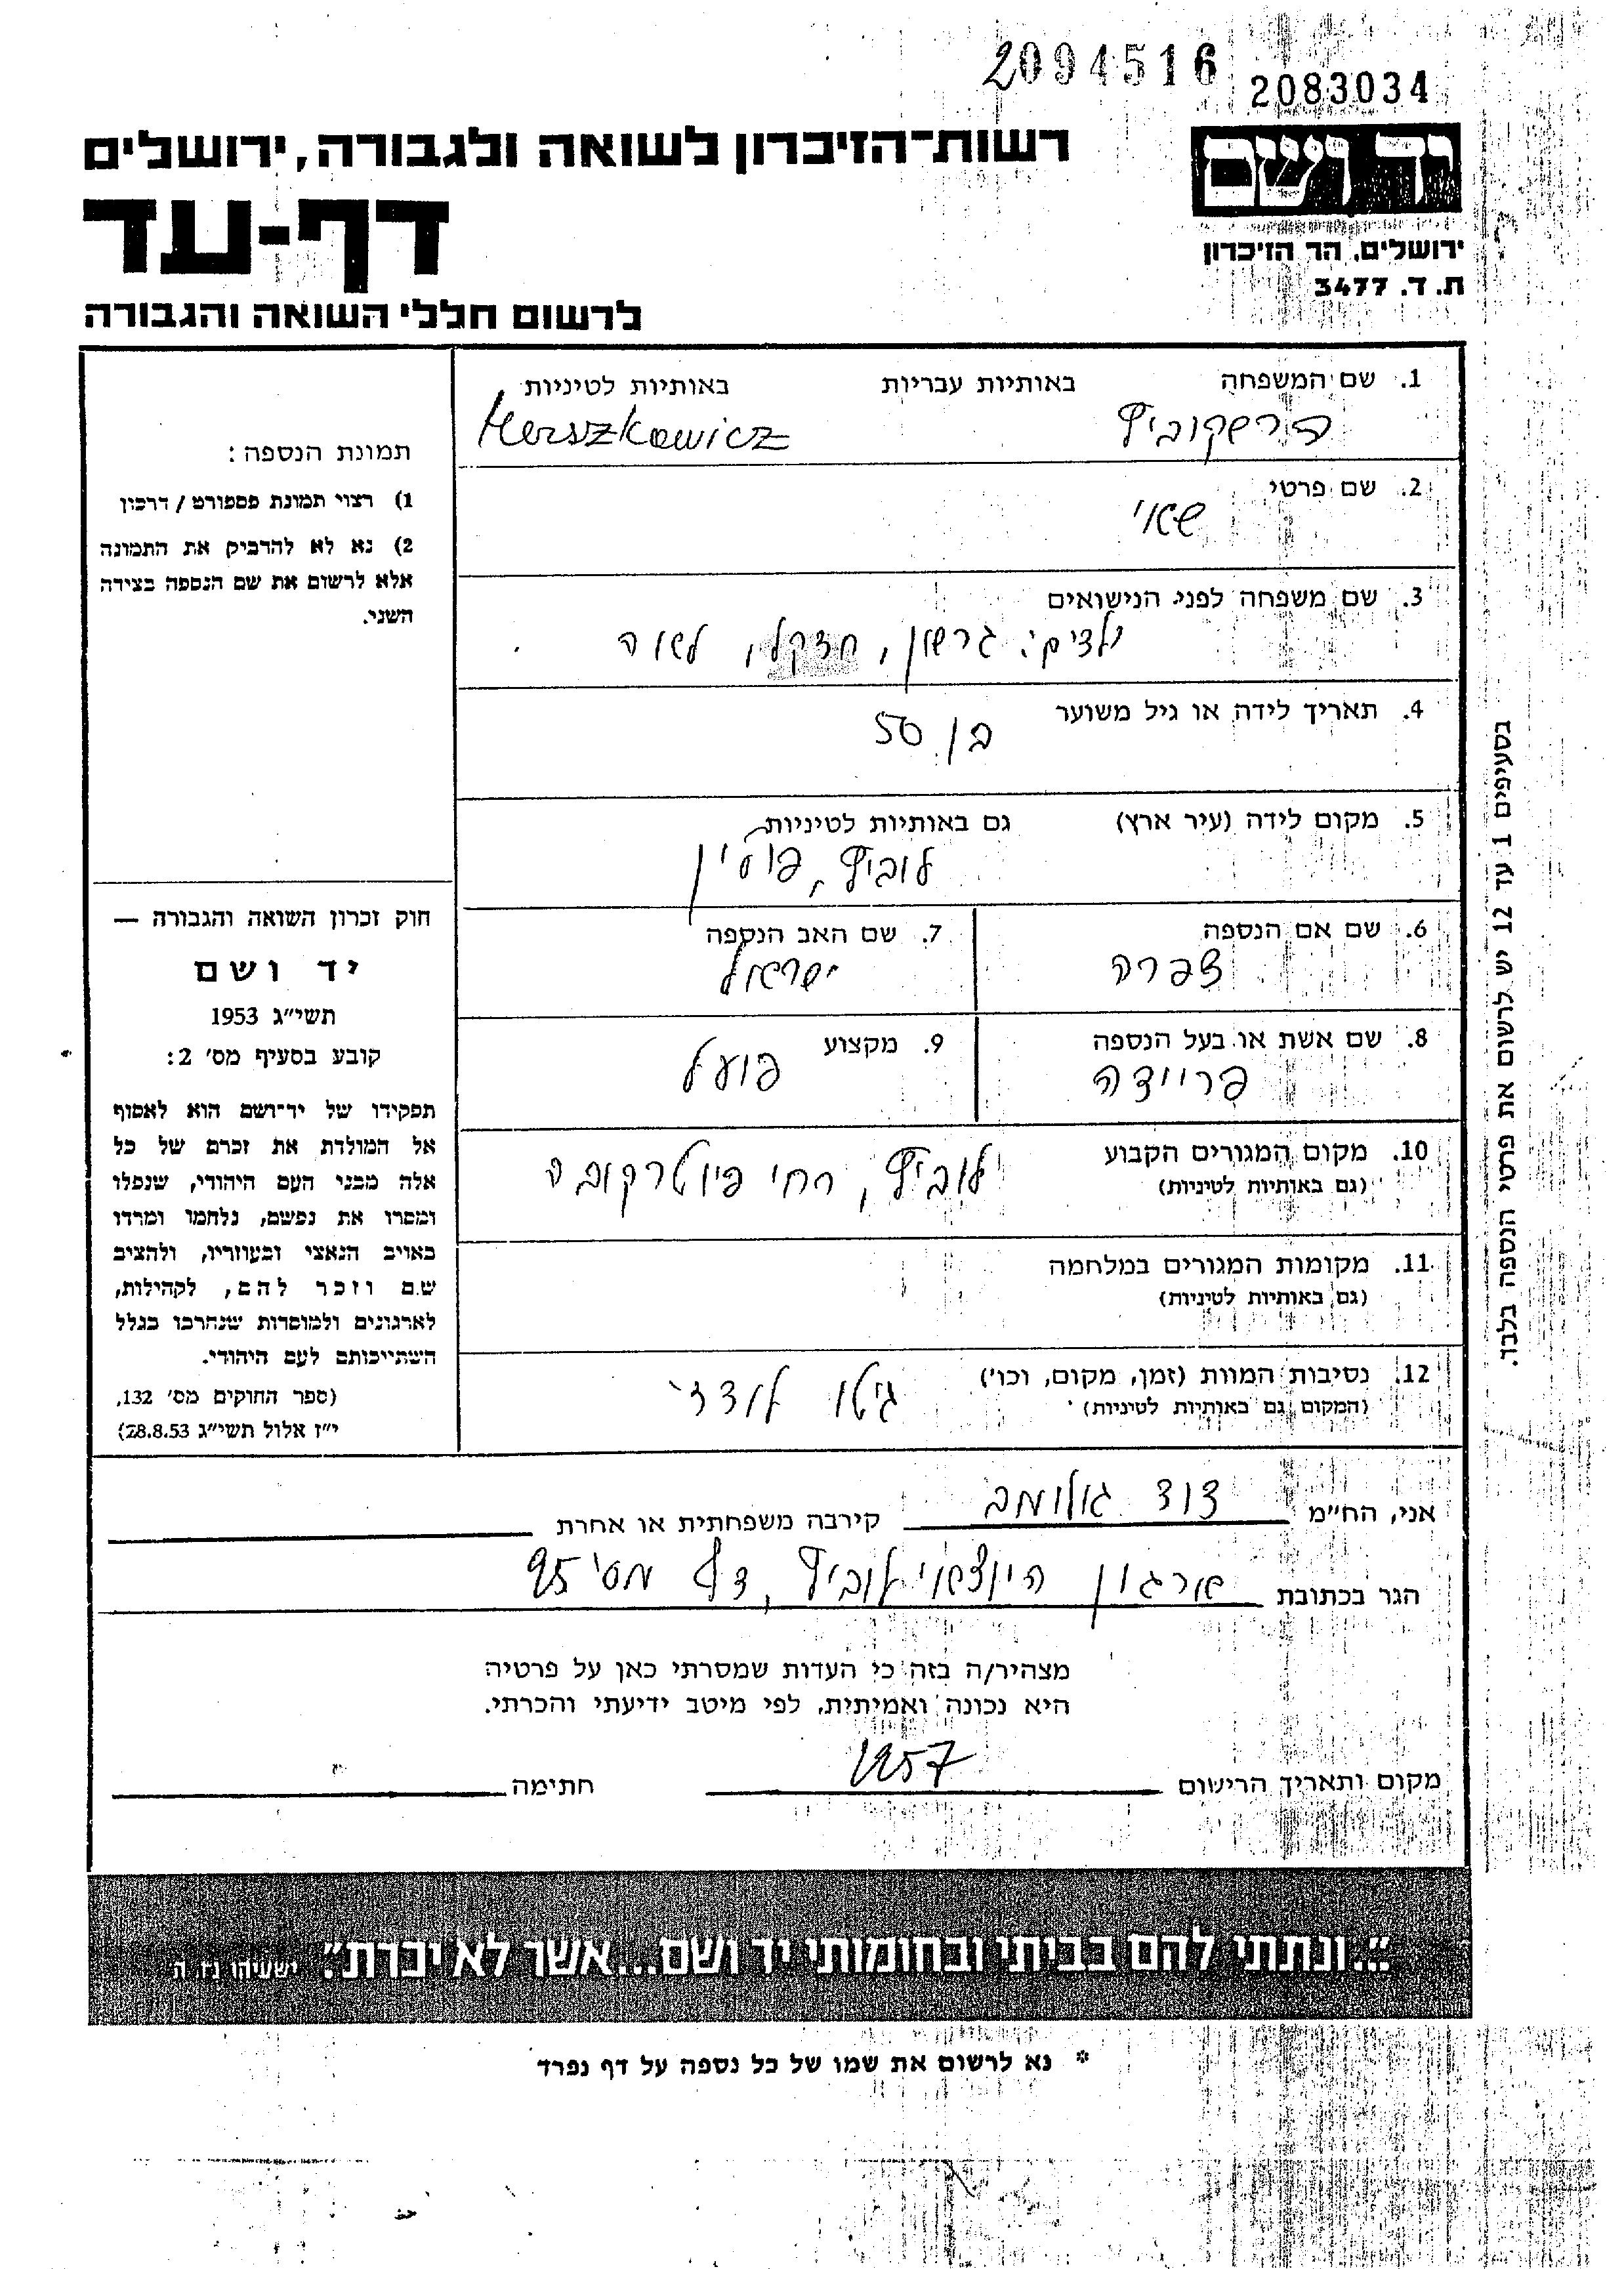 2094516
2083034
יד ושם
רשות־הזיכרון לשואה ולגבורה, ירושלים
ירושלים, הר הזיכרון
ת. ד. 3477
דף-עד
לרשום חללי השואה והגבורה
1. שם המשפחה באותיות עבריות באותיות לטיניות
הרשקוביץ Herszkowicz
2. שם פרטי
3. שם משפחה לפני הנישואים
ילדים: גרשון, חזקל, לאה
4. תאריך לידה או גיל משוער
בן 50
5. מקום לידה (עיר ארץ) גם באותיות לטיניות
לוביץ, פולין
6. שם אם הנספה
צפרה
7. שם האב הנספה
ישראל
8. שם אשת או בעל הנספה
פריידה
9. מקצוע
פועל
10. מקום המגורים הקבוע
(גם באותיות לטיניות)
לוביץ, רחי פיוטרקובה
11. מקומות המגורים במלחמה
(גם באותיות לטיניות)
12. נסיבות המוות (זמן, מקום, וכו׳)
(המקום גם באותיות לטיניות)
גיטו לודז׳
תמונת הנספה:
1) רצוי תמונת פספורט / דרכון
2) נא לא להדביק את התמונה
אלא לרשום את שם הנספה בצידה
השני.
חוק זכרון השואה והגבורה —
יד ושם
תשי״ג 1953
קובע בסעיף מס׳ 2:
תפקידו של יד־ושם הוא לאסוף
אל המולדת את זכרם של כל
אלה מבני העם היהודי, שנפלו
ומסרו את נפשם, נלחמו ומרדו
באויב הנאצי ובעוזריו, ולהציב
שם וזכר להם, לקהילות,
לארגונים ולמוסדות שנחרבו בגלל
השתייכותם לעם היהודי.
(ספר החוקים מס׳ 132,
י״ז אלול תשי״ג 28.8.53)
בסעיפים 1 עד 12 יש לרשום את פרטי הנספה בלבד.
אני, הח״מ דוד גולומב קירבה משפחתית או אחרת
הגר בכתובת ארגון היוצאי לוביץ, דף מס׳ 95
מצהיר/ה בזה כי העדות שמסרתי כאן על פרטיה
היא נכונה ואמיתית, לפי מיטב ידיעתי והכרתי.
מקום ותאריך הרישום 1957 חתימה
״...ונתתי להם בביתי ובחומותי יד ושם...אשר לא יכרת״. ישעיהו נ״ו ה
* נא לרשום את שמו של כל נספה על דף נפרד